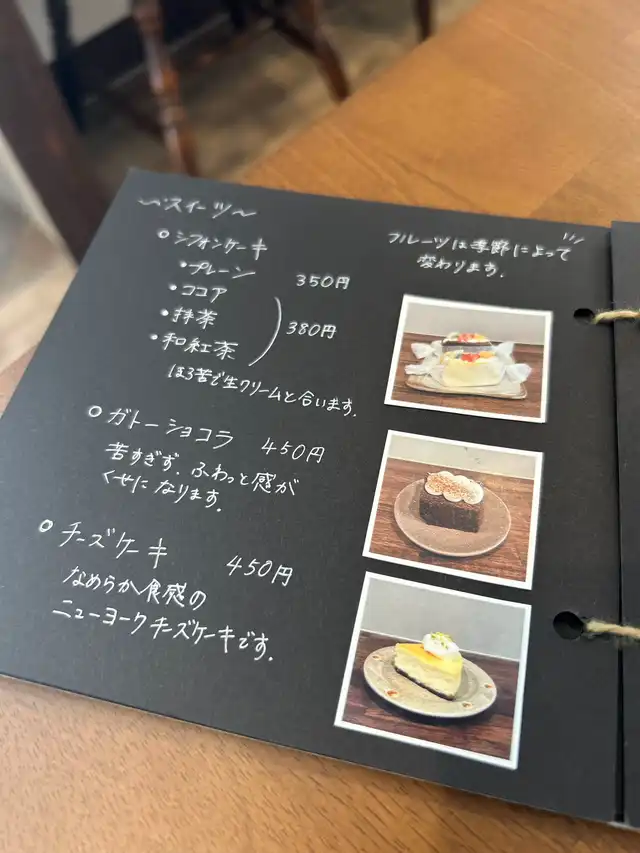 〜スイーツ〜
○シフォンケーキ
・プレーン 350円
・ココア
・抹茶 380円
・和紅茶
ほろ苦で生クリームと合います。
○ガトーショコラ 450円
苦すぎず、ふわっと感が
くせになります。
○チーズケーキ 450円
なめらか食感の
ニューヨークチーズケーキです。
フルーツは季節によって
変わります。